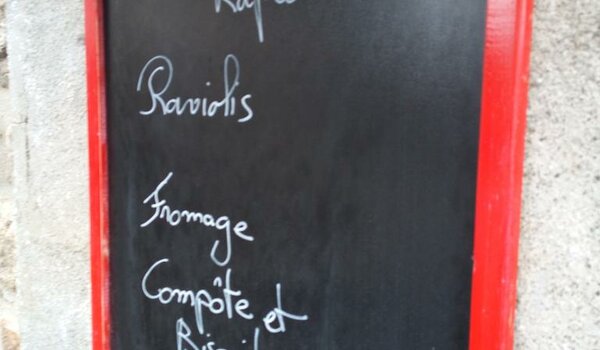 Raviolis
Fromage
Compôte et